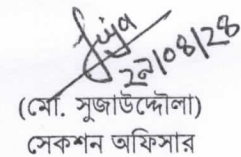 ২৯/০৪/২৪
(মো. সুজাউদ্দৌলা)
সেকশন অফিসার